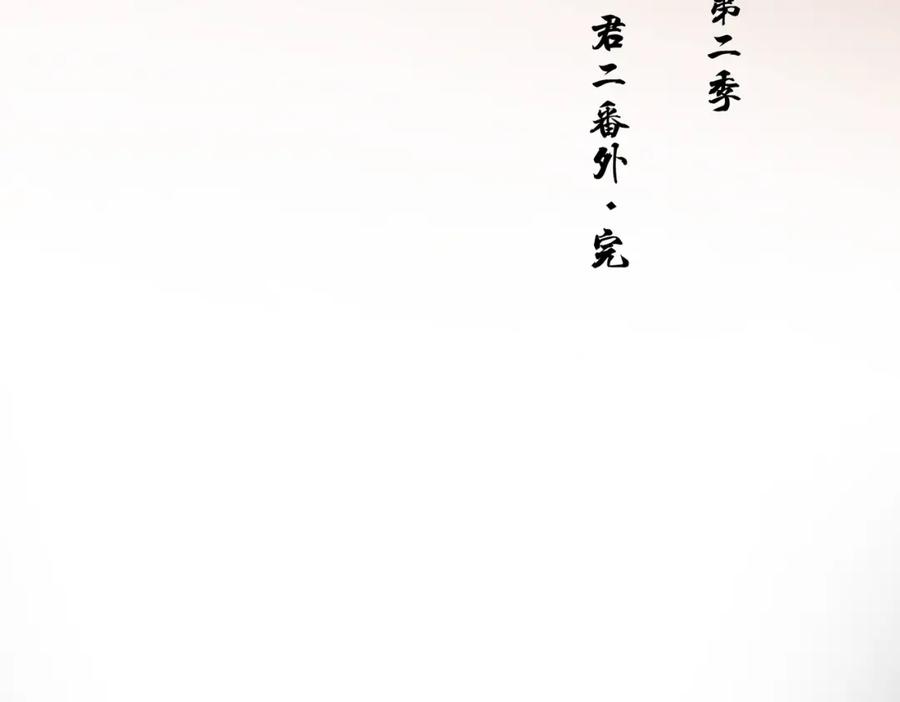 第二季
君二番外·完